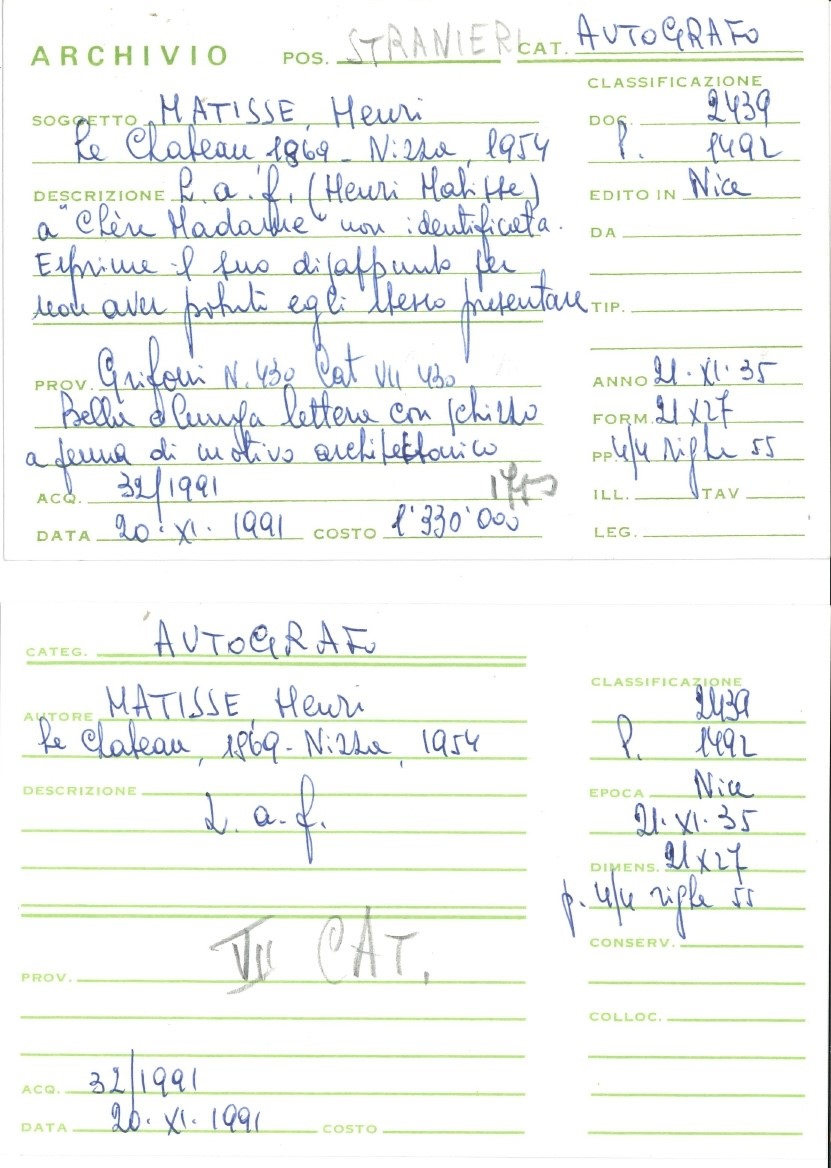 ARCHIVIO POS. STRANIERI CAT. AUTOGRAFO
CLASSIFICAZIONE
SOGGETTO MATISSE, Henri
DOC. 2439
Le Chateau, 1869 - Nizza, 1954
P. 1492
DESCRIZIONE L. a. f. (Henri Matisse)
EDITO IN Nice
a "Chère Madame" non identificata.
DA
Esprime il suo disappunto per
non aver potuti egli stesso presentare
TIP.
PROV. Grifoni N. 430 Cat VII 430
ANNO 21. XI. 35
Bella e lunga lettera con schizzo
FORM. 21 x 27
a penna di motivo architettonico
PP. 4/4 righe 55
ACQ. 32/1991
1750
ILL. TAV
DATA 20. XI. 1991 COSTO 1'330'000
LEG.
CATEG. AUTOGRAFO
CLASSIFICAZIONE
AUTORE MATISSE, Henri
2439
Le Chateau, 1869 - Nizza, 1954
P. 1492
DESCRIZIONE
EPOCA Nice
L. a. f.
21. XI. 35
DIMENS. 21 x 27
p. 4/4 righe 55
VII CAT.
CONSERV.
PROV.
COLLOC.
ACQ. 32/1991
DATA 20. XI. 1991 COSTO